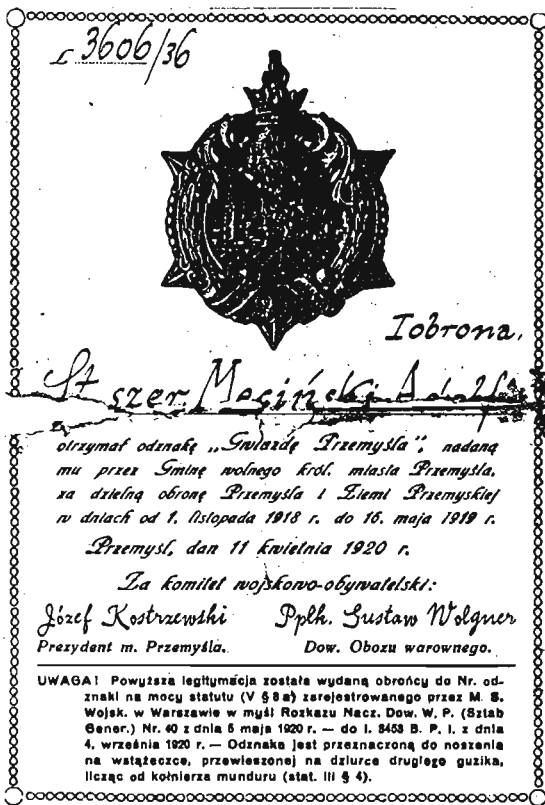 L 3606/36
I obrona.
St. szer. Męciński Adolf
otrzymał odznakę „Gwiazdę Przemyśla", nadaną
mu przez Gminę wolnego król. miasta Przemyśla,
za dzielną obronę Przemyśla i Ziemi Przemyskiej
w dniach od 1. listopada 1918 r. do 16. maja 1919 r.
Przemyśl, dan 11 kwietnia 1920 r.
Za komitet wojskowo-obywatelski:
Józef Kostrzewski Ppłk. Gustaw Wolgner
Prezydent m. Przemyśla. Dow. Obozu warownego.
UWAGA! Powyższa legitymacja została wydaną obrońcy do Nr. od-
znaki na mocy statutu (V § 8 a) zarejestrowanego przez M. S.
Wojsk. w Warszawie w myśl Rozkazu Nacz. Dow. W. P. (Sztab
Gener.) Nr. 40 z dnia 5 maja 1920 r. — do l. 5453 B. P. I. z dnia
4. września 1920 r. — Odznaka jest przeznaczoną do noszenia
na wstążeczce, przewieszonej na dziurce drugiego guzika,
licząc od kołnierza munduru (stat. III § 4).